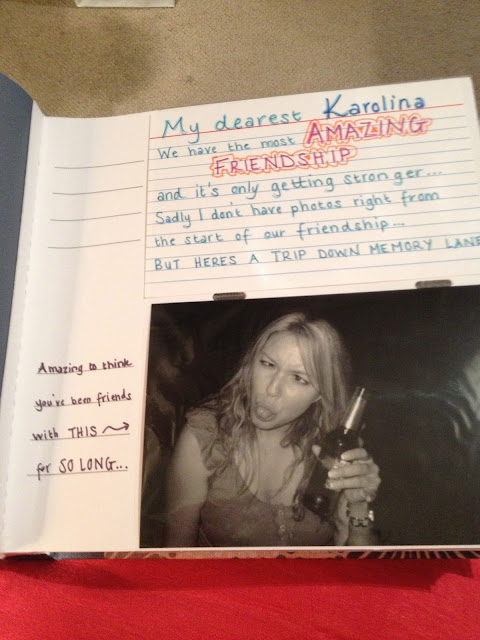 My dearest Karolina
We have the most AMAZING
FRIENDSHIP
and it's only getting stronger...
Sadly I don't have photos right from
the start of our friendship...
BUT HERES A TRIP DOWN MEMORY LANE
Amazing to think
you've been friends
with THIS →
for SO LONG...